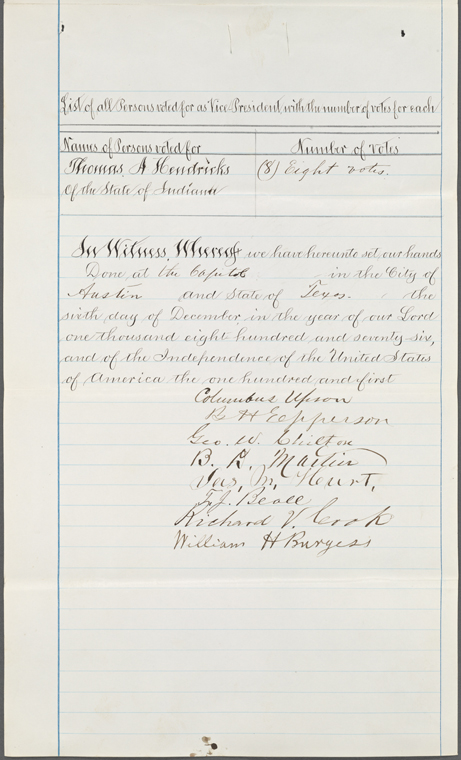 List of all Persons voted for as Vice President, with the number of votes for each
Names of Persons voted for
Number of Votes
Thomas A Hendricks
(8) Eight votes.
Of the State of Indiana
In Witness Whereof we have hereunto set our hands
Done at the Capitol in the City of
Austin and State of Texas. the
sixth day of December in the year of our Lord
one thousand eight hundred and seventy six,
and of the Independence of the United States
of America the one hundred and first
Columbus Upson
B H Epperson
Geo. W. Chilton
B. R. Martin
Jas. M. Hurt,
T. J. Beall
Richard V. Cook
William H Burgess